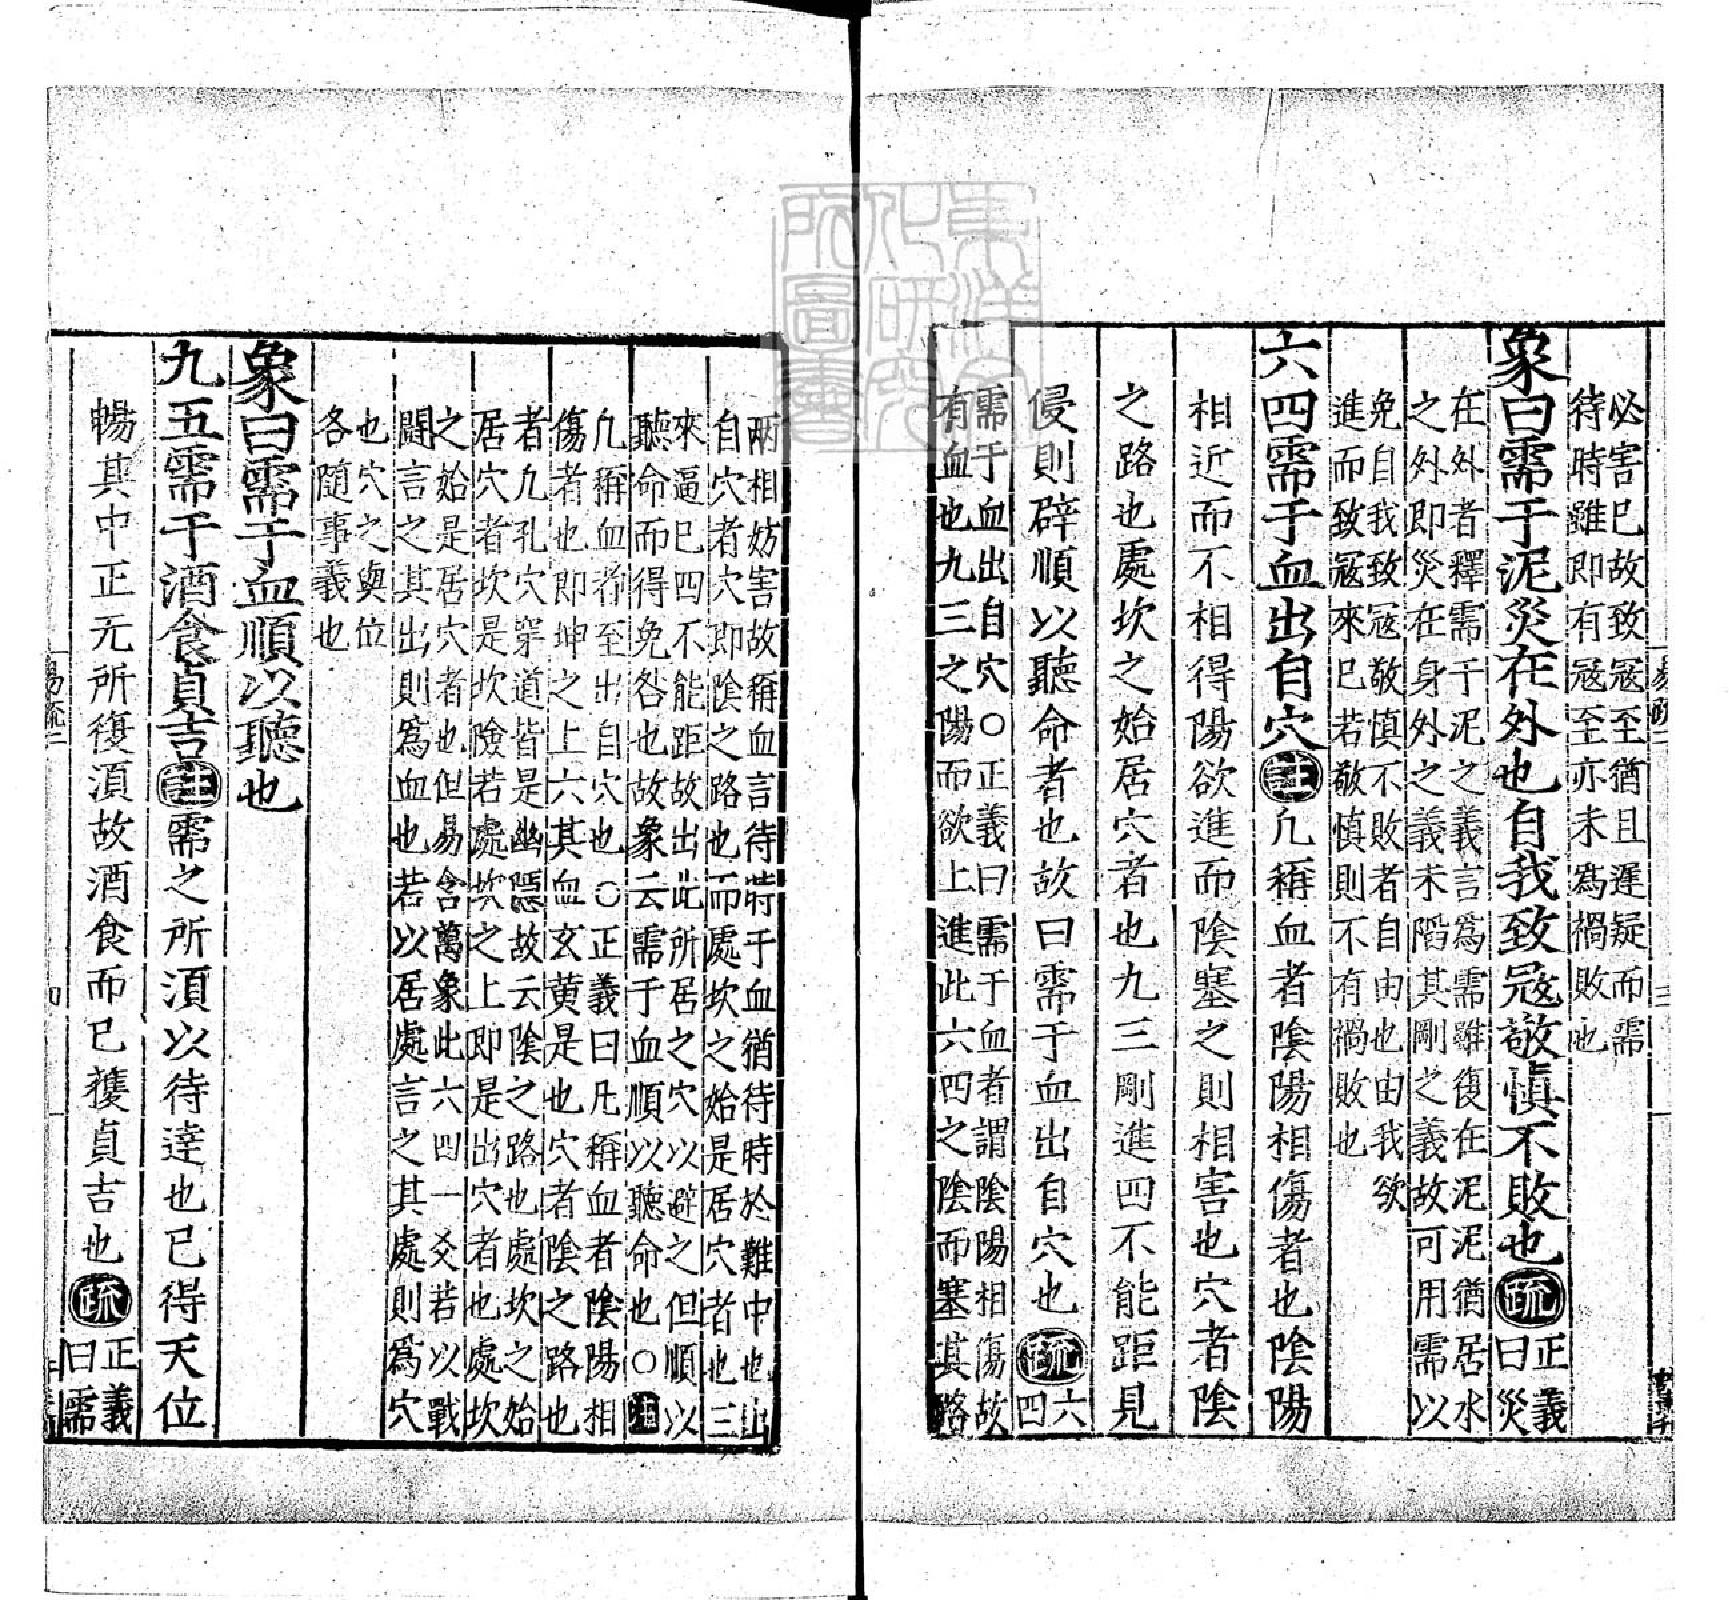 必害巳故致冦至猶且遲疑而需
待時雖即有冦至亦未為禍敗也
象曰需于泥災在外也自我致冦敬愼不敗也疏正義
曰災
在外者釋需于泥之義言為需雖復在泥泥猶居水
之外即災在身外之義未陷其剛之義故可用需以
免自我致冦敬慎不敗者自由也由我欲
進而致冦來巳若敬慎則不有禍敗也
六四需于血出自穴註凢稱血者陰陽相傷者也陰陽
相近而不相得陽欲進而陰塞之則相害也穴者陰
之路也處坎之始居穴者也九三剛進四不能距見
侵則辟順以聽命者也故曰需于血出自穴也疏六
四
需于血出自穴○正義曰需于血者謂陰陽相傷故
有血也九三之陽而欲上進此六四之陰而塞其路
兩相妨害故稱血言待時于血猶待時於難中也出
自穴者穴即陰之路也而處坎之始是居穴者也三
來逼巳四不能距故出此所居之穴以避之但順以
聽命而得免咎也故象云需于血順以聽命也○註
凢稱血者至出自穴也○正義曰凡稱血者陰陽相
傷者也即坤之上六其血玄黄是也穴者陰之路也
者凢孔穴穿道皆是幽隱故云陰之路也處坎之始
居穴者坎是坎險若處坎之上即是出穴者也處坎
之始是居穴者也但易含萬象此六四一爻若以戰
鬪言之其出則為血也若以居處言之其處則為穴
也穴之與位
各隨事義也
象曰需于血順以聽也
九五需于酒食貞吉註需之所須以待逹也已得天位
暢其中正无所復須故酒食而已獲貞吉也疏正義
曰需